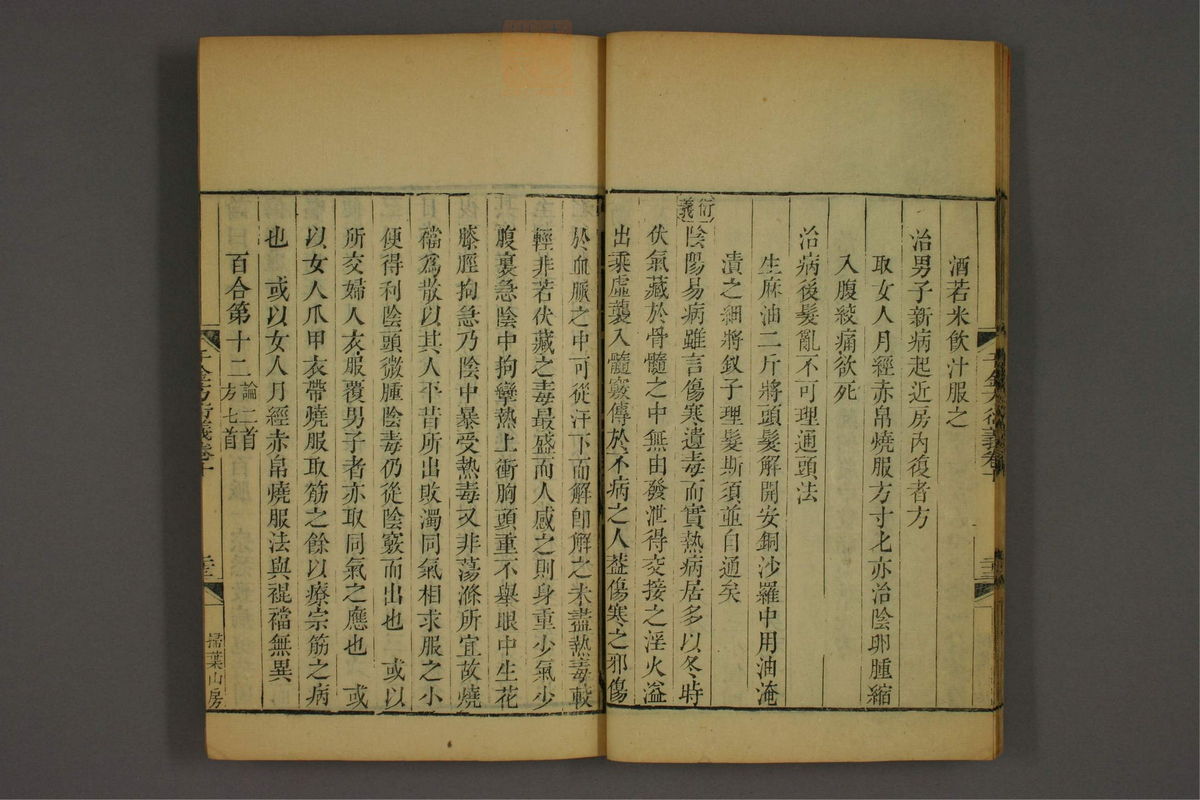 酒若米飲汁服之
治男子新病起近房內復者方
取女人月經赤帛燒服方寸匕亦治陰卵腫縮
入腹絞痛欲死
治病後髮亂不可理通頭法
生麻油二斤將頭髮解開安銅沙羅中用油淹
漬之細將釵子理髮斯須並自通矣
衍義
陰陽易病雖言傷寒遺毒而實熱病居多以冬時
伏氣藏於骨髓之中無由發泄得交接之淫火溢
出乘虛襲入髓竅傳於不病之人葢傷寒之邪傷
於血脈之中可從汗下而解卽解之未盡熱毒較
輕非若伏藏之毒最盛而人感之則身重少氣少
腹裏急陰中拘攣熱上衝胸頭重不舉眼中生花
膝脛拘急乃陰中暴受熱毒又非蕩滌所宜故燒
襠爲散以其人平昔所出敗濁同氣相求服之小
便得利陰頭微腫陰毒仍從陰竅而出也 或以
所交婦人衣服覆男子者亦取同氣之應也 或
以女人爪甲衣帶燒服取筋之餘以療宗筋之病
也 或以女人月經赤帛燒服法與裩襠無異
百合第十二 論二首 方七首
千金方衍義卷十
掃葉山房